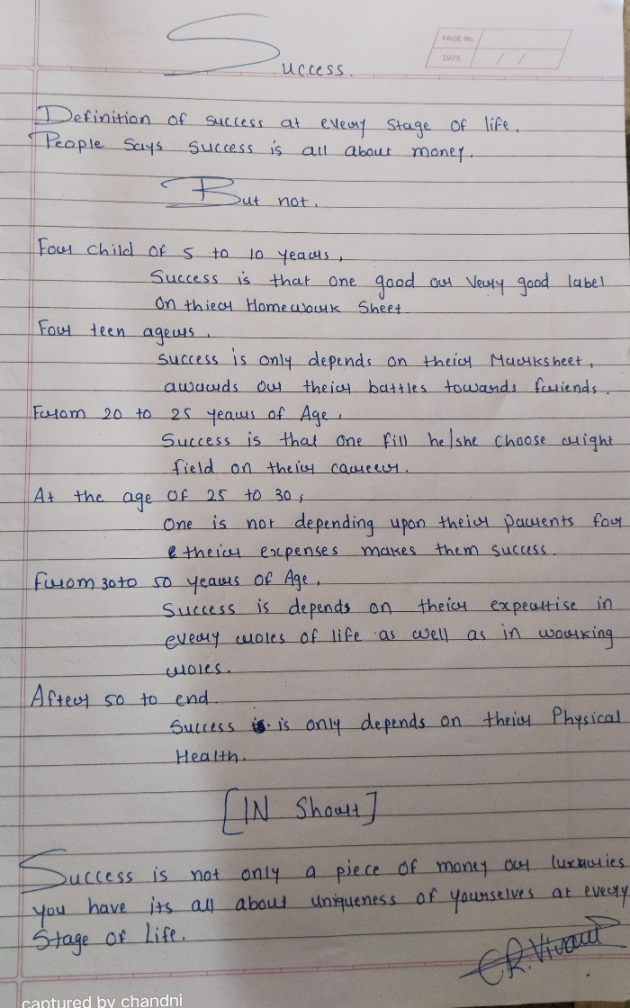 Success.
PAGE No.
DATE / /
Definition of success at every stage of life.
People Says Success is all about money.
But not.
For child of 5 to 10 years,
Success is that one good or very good label
on thier Homework Sheet.
For teen agers.
Success is only depends on their Marksheet,
awards or their battles towards friends.
From 20 to 25 years of Age,
Success is that one fill he/she choose right
field on their career.
At the age of 25 to 30,
One is not depending upon their parents for
their expenses makes them success.
From 30 to 50 years of Age.
Success is depends on their expertise in
every roles of life as well as in working
roles.
After 50 to end.
Success is only depends on their Physical
Health.
[IN Short]
Success is not only a piece of money or luxuries
you have its all about uniqueness of yourselves at every
Stage of Life.
captured by chandni